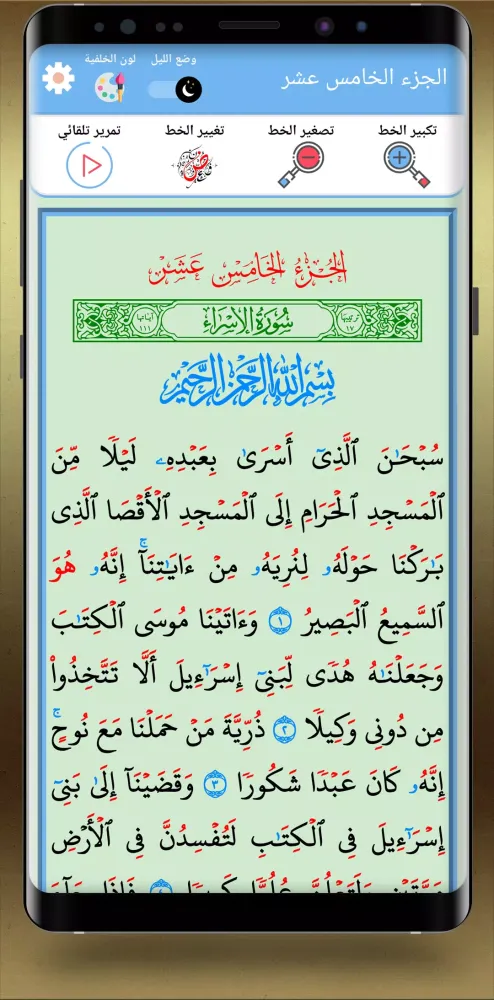 الجزء الخامس عشر
وضع الليل
لون الخلفية
تكبير الخط
تصغير الخط
تغيير الخط
تمرير تلقائي
الجُزْءُ الخَامِسْ عَشَرْ
ترتيبها ١٧
سُورَةُ الإِسْرَاء
آياتها ١١١
بِسْمِ اللَّهِ الرَّحْمَنِ الرَّحِيمِ
سُبْحَـٰنَ ٱلَّذِىٓ أَسْرَىٰ بِعَبْدِهِۦ لَيْلًا مِّنَ
ٱلْمَسْجِدِ ٱلْحَرَامِ إِلَى ٱلْمَسْجِدِ ٱلْأَقْصَا ٱلَّذِى
بَـٰرَكْنَا حَوْلَهُۥ لِنُرِيَهُۥ مِنْ ءَايَـٰتِنَآ ۚ إِنَّهُۥ هُوَ
ٱلسَّمِيعُ ٱلْبَصِيرُ ١ وَءَاتَيْنَا مُوسَى ٱلْكِتَـٰبَ
وَجَعَلْنَـٰهُ هُدًى لِّبَنِىٓ إِسْرَٰٓءِيلَ أَلَّا تَتَّخِذُوا۟
مِن دُونِى وَكِيلًا ٢ ذُرِّيَّةَ مَنْ حَمَلْنَا مَعَ نُوحٍ ۚ
إِنَّهُۥ كَانَ عَبْدًا شَكُورًا ٣ وَقَضَيْنَآ إِلَىٰ بَنِىٓ
إِسْرَٰٓءِيلَ فِى ٱلْكِتَـٰبِ لَتُفْسِدُنَّ فِى ٱلْأَرْضِ